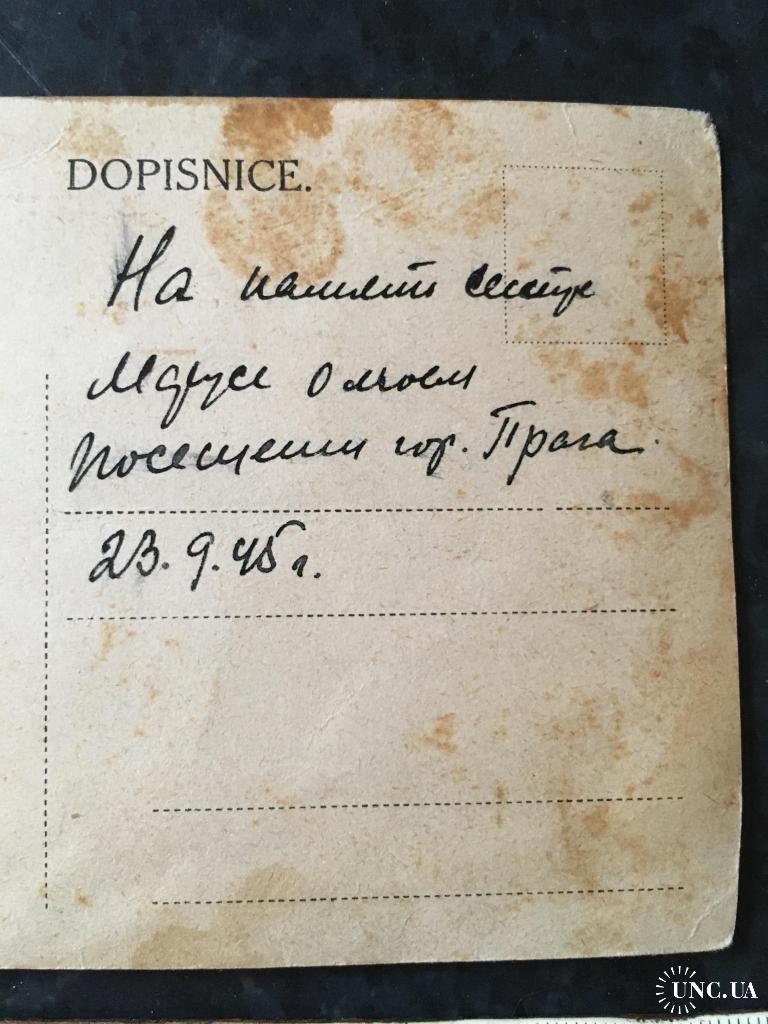 DOPISNICE.
На память сестре
Марусе о моем
посещении гор. Прага.
23.9.45 г.
UNC.UA